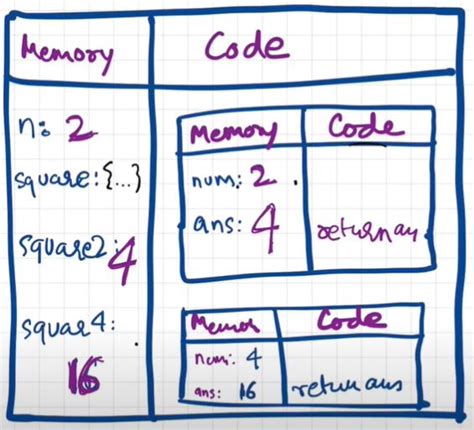 Memory
Code
n: 2
square: {...}
square2: 4
squar4:
16
Memory
Code
num: 2
ans: 4
return an
Memoh
Code
num: 4
ans: 16
return ans